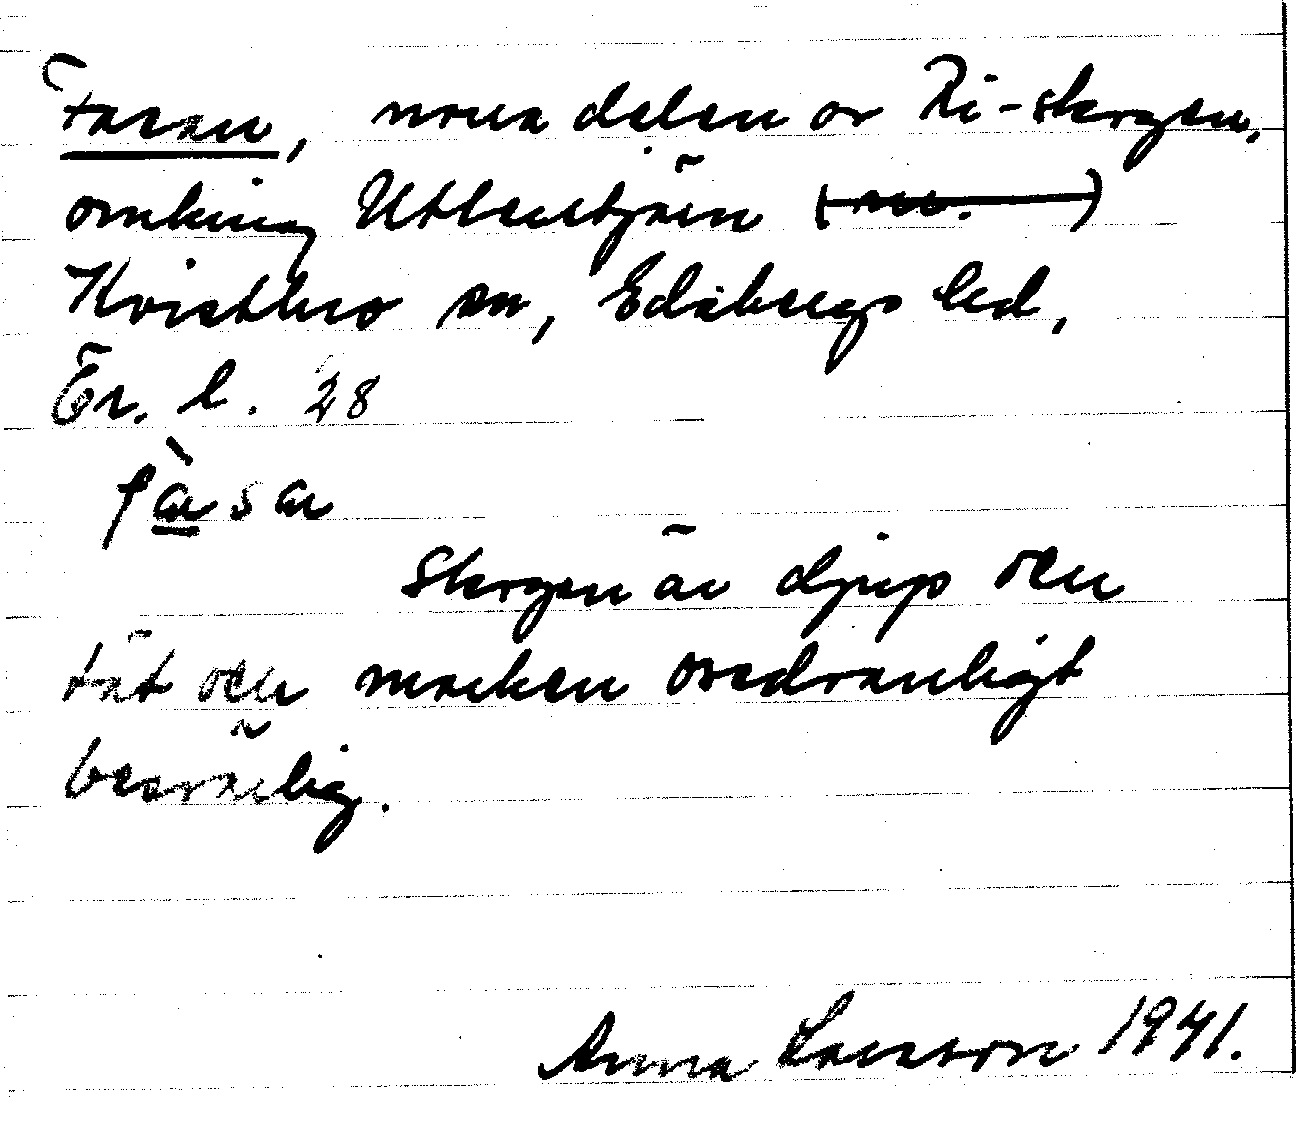 Fasan, norra delen av Ri-skogen,
omkring Utletjärn (
Kvistbro sn, Edsbergs hd,
Ör. l. 28
fàsa
Skogen är djup och
tät och marken ovedranligt
besvärlig.
Anna Larsson 1941.